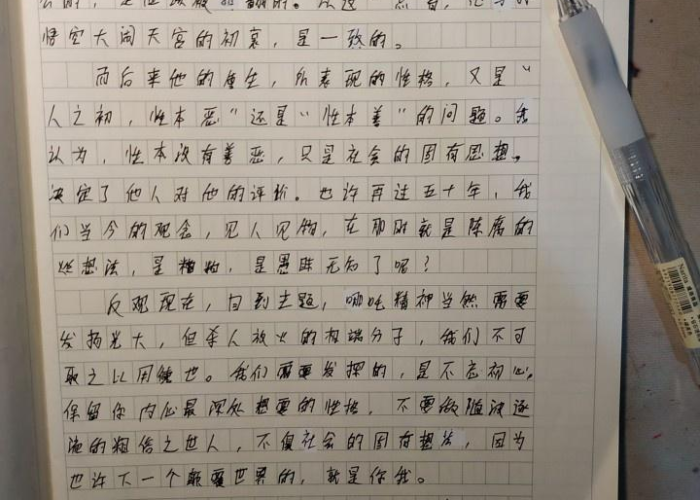 悟空大闹天宫的初衷，是一致的。
而后来他的重生，所表现的性格，又是“
人之初，性本恶”还是“性本善”的问题。我
认为，性本没有善恶，只是社会的固有思想，
决定了他人对他的评价。也许再过五十年，我
们当今的观念，见人见物，在那时就是陈腐的
想法，是糟粕，是愚昧无知了呢？
反观现在，回到主题，哪吒精神当然需要
发扬光大，但杀人放火的极端分子，我们不可
取之以用铢也。我们需要发探的，是不忘初心，
保留你内心最深处想要的性格，不要做随波逐
流的粗俗之世人，不复社会的固有想法，因为
也许下一个颠覆世界的，就是你我。